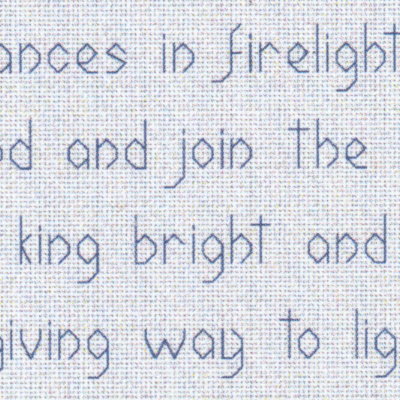 ances in firelight
od and join the
king bright and
giving way to lig